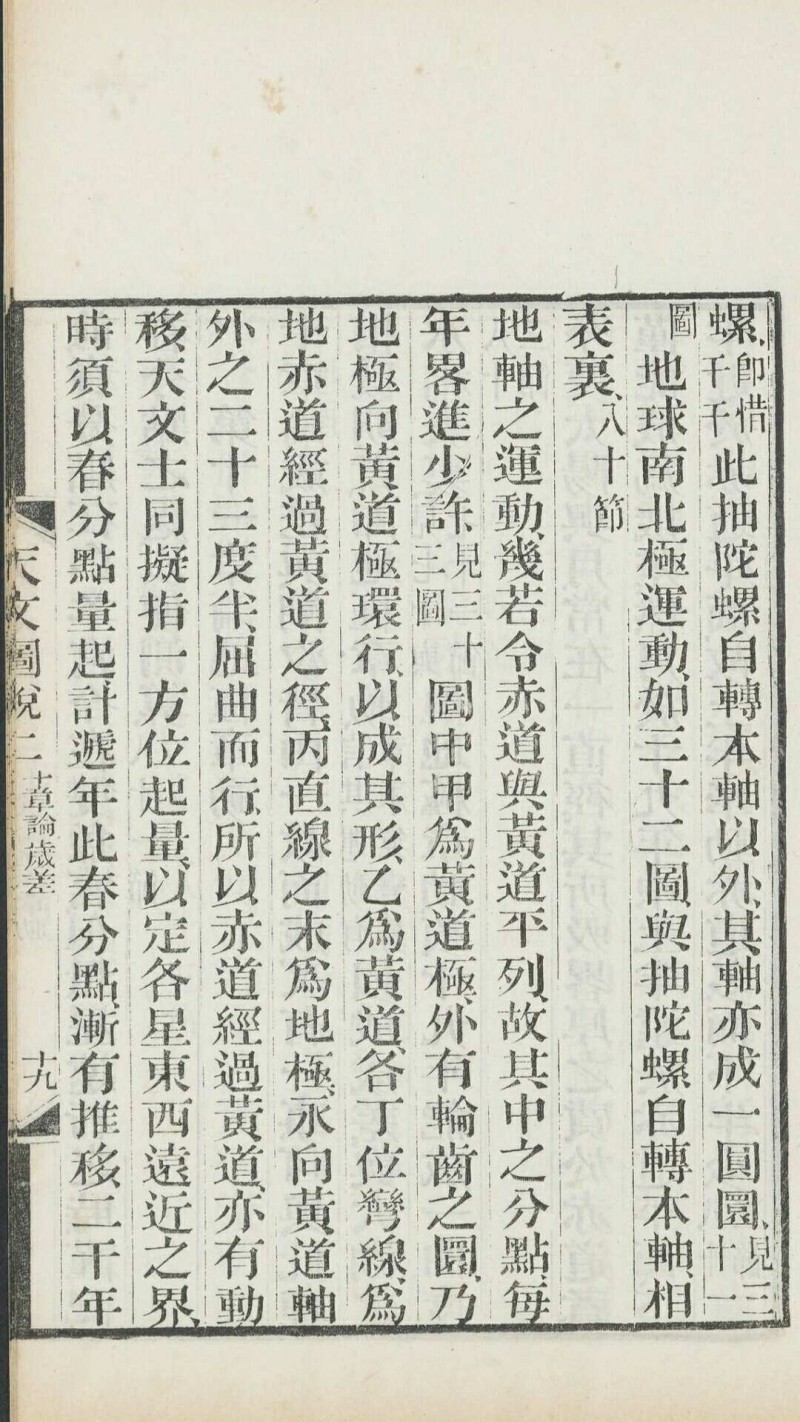 螺、卽惜千千此抽陀螺自轉本軸以外、其軸亦成一圓圜、見三十一
圖地球南北極運動、如三十二圖、與抽陀螺自轉本軸、相
表裏、八十節
地軸之運動、幾若令赤道與黃道平列、故其中之分點、每
年畧進少許、見三十三圖圖中甲爲黃道極、外有輪齒之圜、乃
地極向黃道極環行、以成其形、乙爲黃道、各丁位彎線、爲
地赤道經過黃道之徑、丙直線之末爲地極、永向黃道軸
外之二十三度半、屈曲而行、所以赤道經過黃道、亦有動
移、天文士同擬指一方位起量、以定各星東西遠近之界、
時須以春分點量起計、遞年此春分點、漸有推移、二千年
天文圖說二 十章論歲差 十九